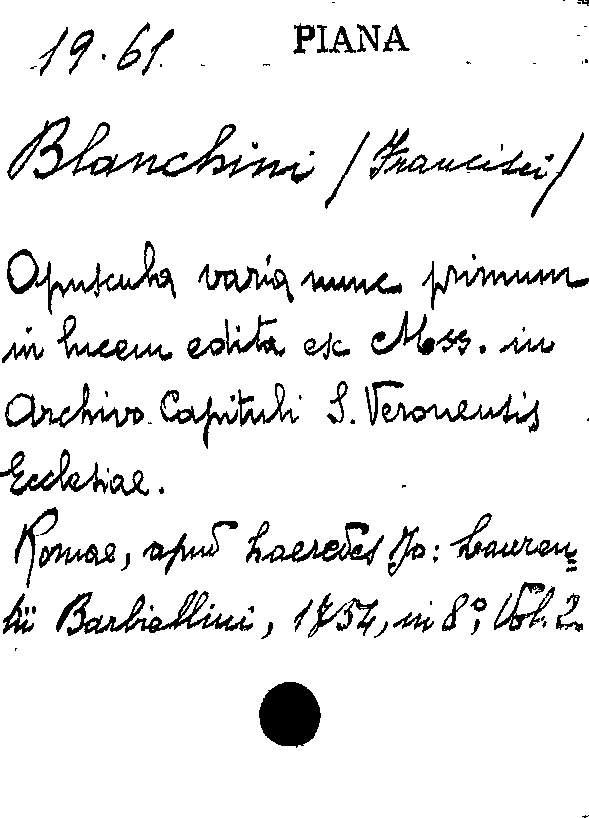 19.61. PIANA
Blanchini /Francisci/
Opuscula varia nunc primum
in lucem edita ex Mss. in
Archivo Capituli S. Veronensis
Ecclesiae.
Romae, apud haeredes Jo: Lauren=
tii Barbiellini, 1754, in 8°, Vol. 2.